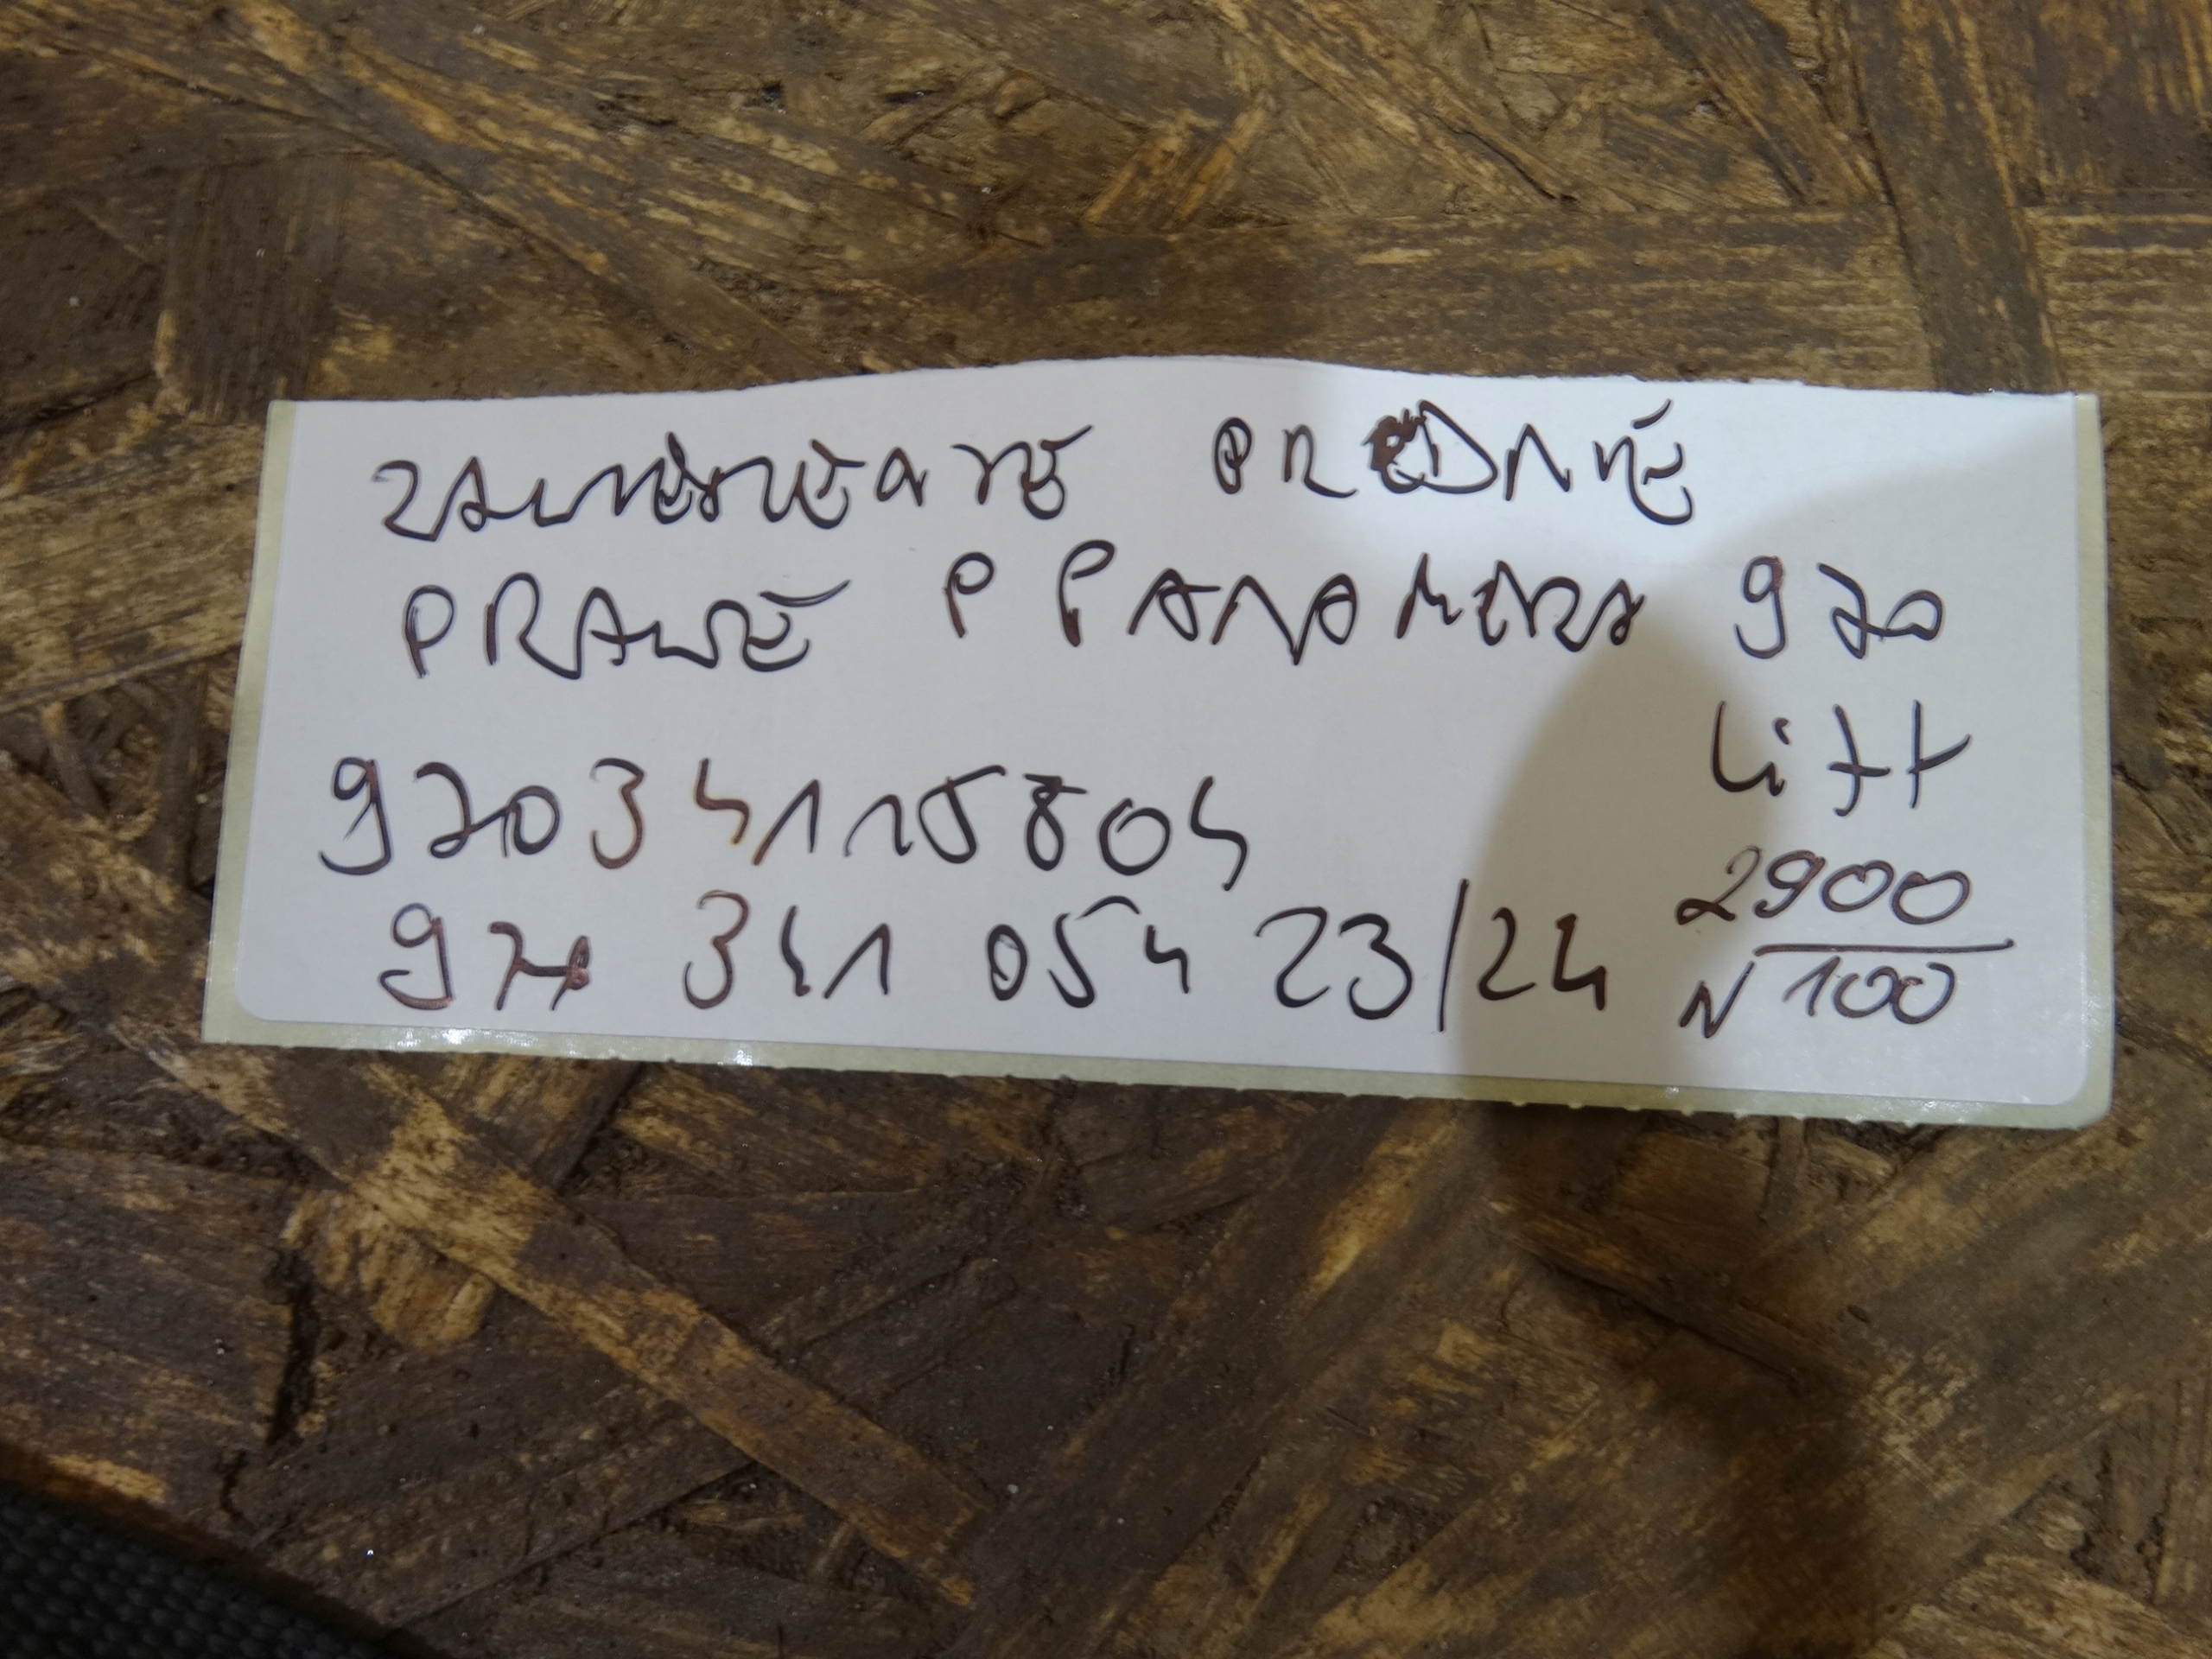 ZAWIESZENIE PRZEDNIE
PRAWE P PANAMERA 970
Lift
97034115804
970 341 054 23/24
2900
N 100